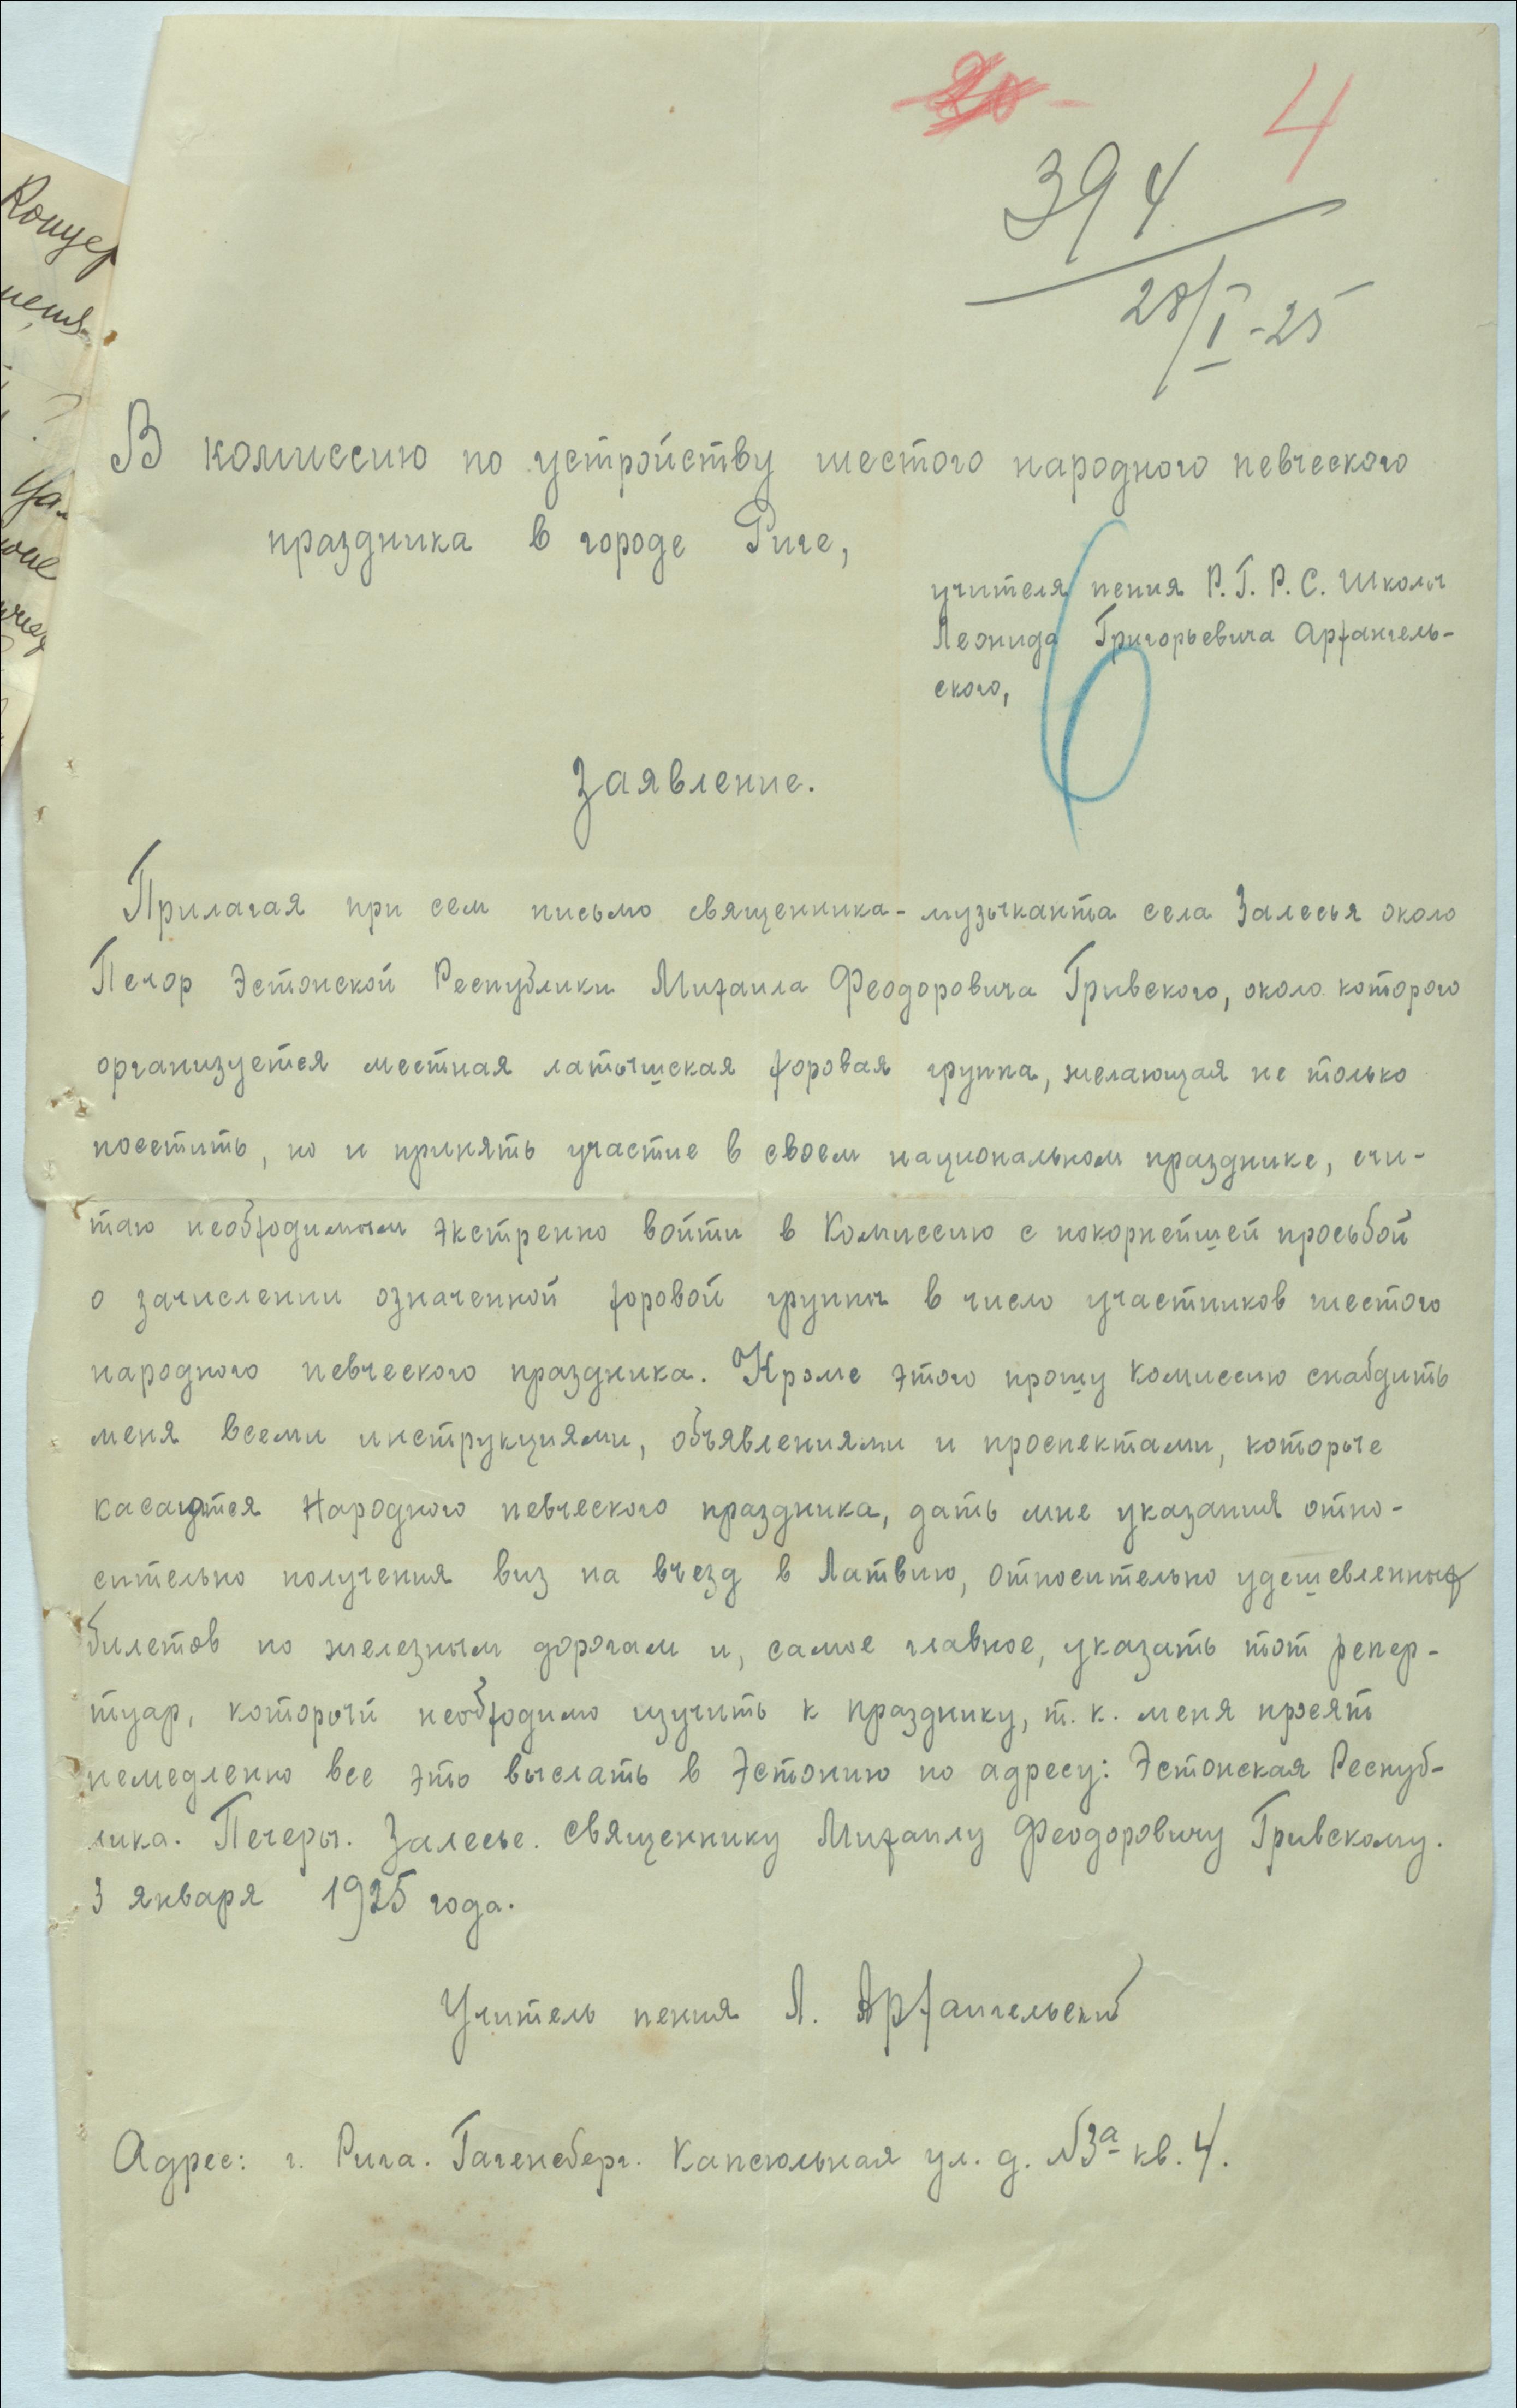 4
394
28/I-25
В комиссию по устройству шестого народного певческого
праздника в городе Риге,
учителя пения Р. Г. Р. С. Школы
Леонида Григорьевича Архангель-
ского,
6
Заявление.
Прилагая при сем письмо священника-музыканта села Залесья около
Печор Эстонской Республики Михаила Феодоровича Гривского, около которого
организуется местная латышская хоровая группа, желающая не только
посетить, но и принять участие в своем национальном празднике, счи-
таю необходимым экстренно войти в Комиссию с покорнейшей просьбой
о зачислении означенной хоровой группы в число участников шестого
народного певческого праздника. Кроме этого прошу Комиссию снабдить
меня всеми инструкциями, объявлениями и проспектами, которые
касаются Народного певческого праздника, дать мне указания отно-
сительно получения виз на въезд в Латвию, относительно удешевленных
билетов по железным дорогам и, самое главное, указать тот репер-
туар, который необходимо изучить к празднику, т. к. меня просят
немедленно все это выслать в Эстонию по адресу: Эстонская Респуб-
лика. Печеры. Залесье. священнику Михаилу Феодоровичу Гривскому.
3 января 1925 года.
Учитель пения Л. Архангельский
Адрес: г. Рига. Гагенсберг. Капсюльная ул. д. №3а кв. 4.